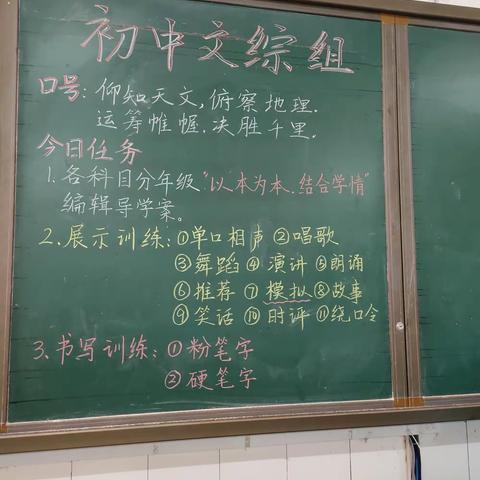 初中文综组
口号：仰知天文，俯察地理.
运筹帷幄.决胜千里.
今日任务
1.各科目分年级“以本为本.结合学情”
编辑导学案。
2.展示训练：①单口相声 ②唱歌
③舞蹈 ④演讲 ⑤朗诵
⑥推荐 ⑦模拟 ⑧故事
⑨笑话 ⑩时评 ⑪绕口令
3.书写训练：①粉笔字
②硬笔字